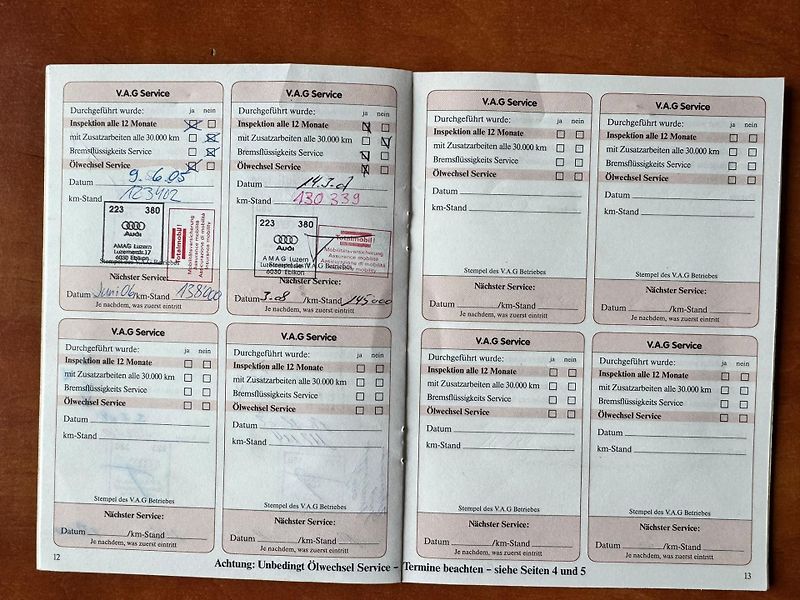 V.A.G Service
Durchgeführt wurde: ja nein
Inspektion alle 12 Monate
mit Zusatzarbeiten alle 30.000 km
Bremsflüssigkeits Service
Ölwechsel Service
Datum 9.6.05
km-Stand 123402
223 380
Audi
AMAG Luzern
Luzernerstr.17
6030 Ebikon
Stempel des V.A.G Betriebes
Totalmobil!
Mobilitätsversicherung
Assurance mobilité
Assicurazione di mobilità
Assurance mobility
Nächster Service:
Datum Juni 06 /km-Stand 138000
Je nachdem, was zuerst eintritt
V.A.G Service
Durchgeführt wurde: ja nein
Inspektion alle 12 Monate
mit Zusatzarbeiten alle 30.000 km
Bremsflüssigkeits Service
Ölwechsel Service
Datum
km-Stand 130 339
223 380
Audi
AMAG Luzern
6030 Ebikon
Stempel des V.A.G Betriebes
Totalmobil!
Mobilitätsversicherung
Assurance mobilité
Assicurazione di mobilità
Nächster Service:
Datum /km-Stand 145000
Je nachdem, was zuerst eintritt
V.A.G Service
Durchgeführt wurde: ja nein
Inspektion alle 12 Monate
mit Zusatzarbeiten alle 30.000 km
Bremsflüssigkeits Service
Ölwechsel Service
Datum
km-Stand
Stempel des V.A.G Betriebes
Nächster Service:
Datum /km-Stand
Je nachdem, was zuerst eintritt
V.A.G Service
Durchgeführt wurde: ja nein
Inspektion alle 12 Monate
mit Zusatzarbeiten alle 30.000 km
Bremsflüssigkeits Service
Ölwechsel Service
Datum
km-Stand
Stempel des V.A.G Betriebes
Nächster Service:
Datum /km-Stand
Je nachdem, was zuerst eintritt
12
V.A.G Service
Durchgeführt wurde: ja nein
Inspektion alle 12 Monate
mit Zusatzarbeiten alle 30.000 km
Bremsflüssigkeits Service
Ölwechsel Service
Datum
km-Stand
Stempel des V.A.G Betriebes
Nächster Service:
Datum /km-Stand
Je nachdem, was zuerst eintritt
V.A.G Service
Durchgeführt wurde: ja nein
Inspektion alle 12 Monate
mit Zusatzarbeiten alle 30.000 km
Bremsflüssigkeits Service
Ölwechsel Service
Datum
km-Stand
Stempel des V.A.G Betriebes
Nächster Service:
Datum /km-Stand
Je nachdem, was zuerst eintritt
V.A.G Service
Durchgeführt wurde: ja nein
Inspektion alle 12 Monate
mit Zusatzarbeiten alle 30.000 km
Bremsflüssigkeits Service
Ölwechsel Service
Datum
km-Stand
Stempel des V.A.G Betriebes
Nächster Service:
Datum /km-Stand
Je nachdem, was zuerst eintritt
V.A.G Service
Durchgeführt wurde: ja nein
Inspektion alle 12 Monate
mit Zusatzarbeiten alle 30.000 km
Bremsflüssigkeits Service
Ölwechsel Service
Datum
km-Stand
Stempel des V.A.G Betriebes
Nächster Service:
Datum /km-Stand
Je nachdem, was zuerst eintritt
13
Achtung: Unbedingt Ölwechsel Service – Termine beachten – siehe Seiten 4 und 5